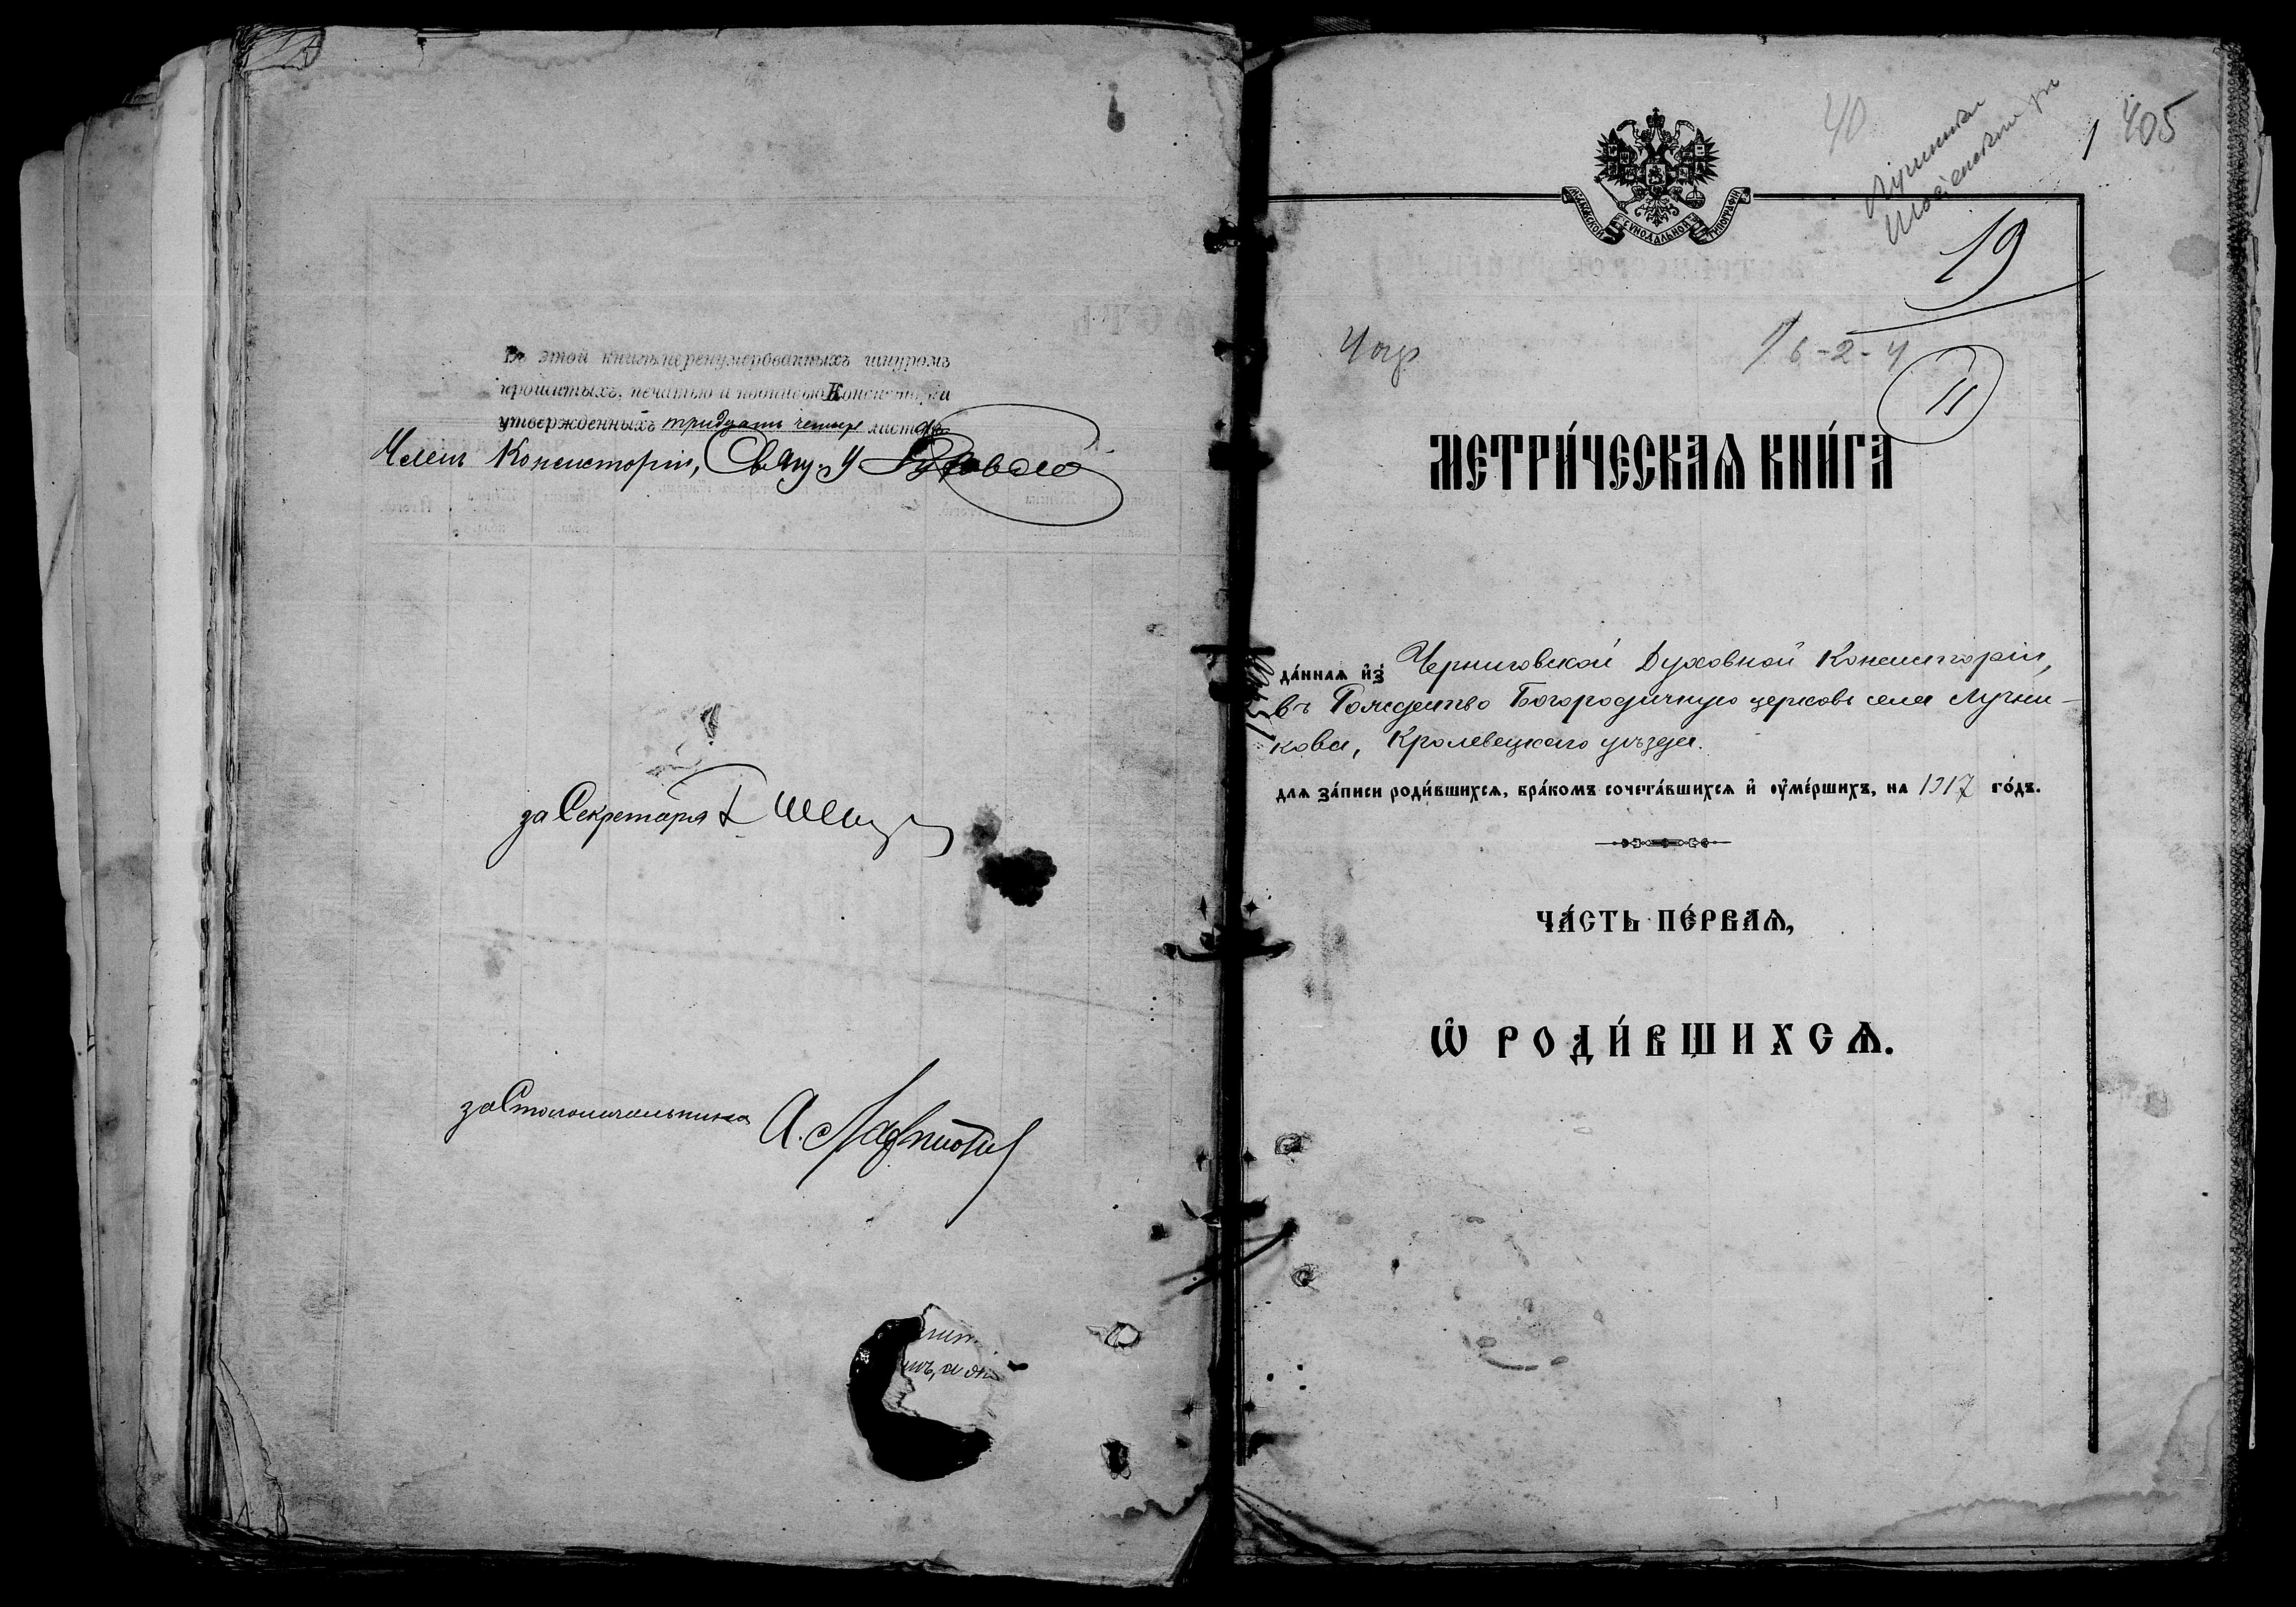 Въ этой книгѣ перенумерованныхъ шнуромъ
прошитыхъ, печатью и подписью Консисторіи
утвержденныхъ тридцать четыре листовъ
Членъ Консисторіи, Свящ.
за Секретаря
за Столоначальника А.
40
1 405
МОСКОВСКОЙ СѴНОДАЛЬНОЙ ТИПОГРАФІИ
19
16-2-4
11
МЕТРИ́ЧЕСКАѦ КНИ́ГА
да́нная и҆з̾ Черниговской Духовной Консисторіи,
въ Рождество Богородичную церковь села Лучни-
кова, Кролевецкаго уѣзда.
для за́писи роди́вшихся, бра́комъ сочета́вшихся и҆ ᲂу҆ме́ршихъ, на 1917 го́дъ.
ЧА́СТЬ ПЕ́РВАѦ,
Ѽ РОДИ́ВШИХСѦ.